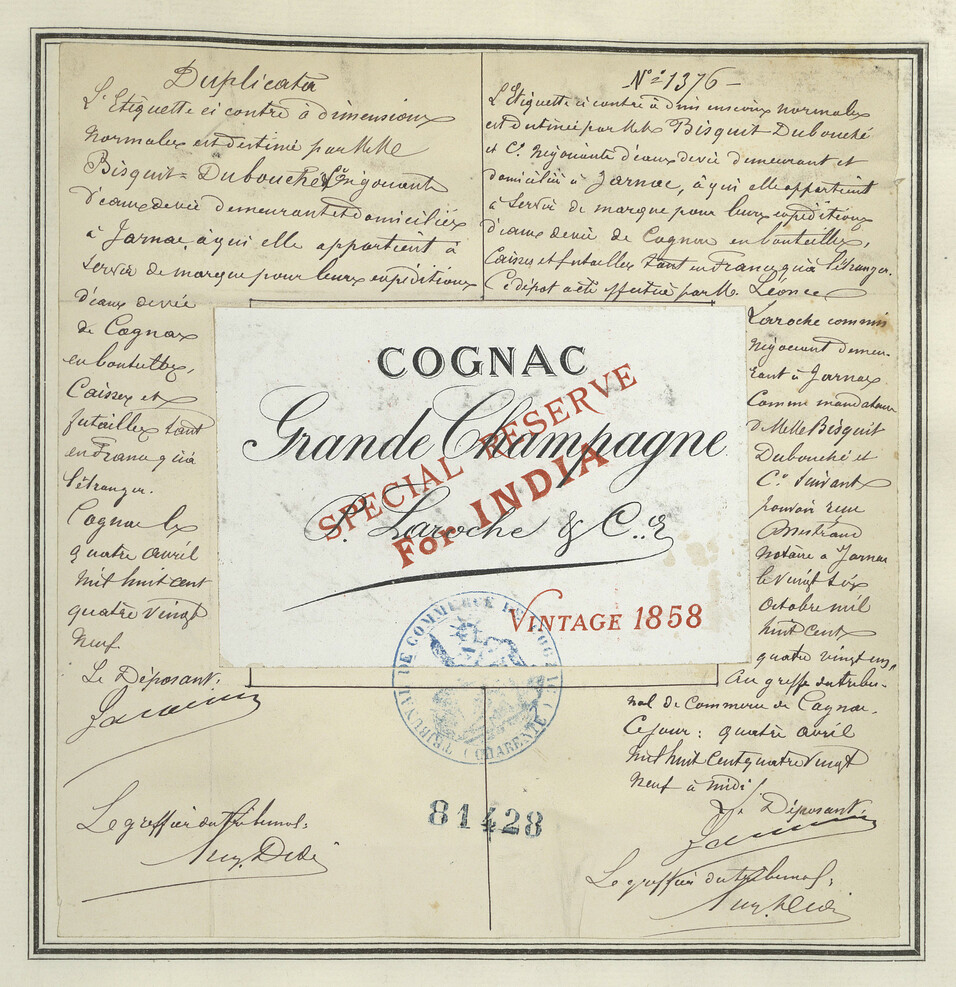 Duplicata
L'Etiquette ci contre à dimensions
normales est destinée par M Melle
Bisquit-Dubouché & Cie négociants
d'eaux de vie demeurant et domiciliés
à Jarnac à qui elle appartient à
servir de marque pour leurs expéditions
d'eaux de vie
de Cognac
en bouteilles,
Caisses et
futailles tant
en France qu'à
l'étranger.
Cognac le
quatre avril
mil huit cent
quatre vingt
neuf
Le Déposant:
Le greffier du tribunal:
No 1376 -
L'Etiquette ci contre à dimensions normales
est destinée par MM Bisquit Dubouché
et Co. négociants d'eaux de vie demeurant et
domiciliés à Jarnac, à qui elle appartient
à servir de marque pour leurs expéditions
d'eaux de vie de Cognac en bouteilles,
Caisses et futailles tant en France qu'à l'étranger.
Ce dépot a été effectué par M. Léonce
Laroche commis
négociant demeu-
rant à Jarnac
Comme mandataire
d Melle Bisquit
Dubouché et
Co. suivant
pouvoir reçu
notaire à Jarnac
le vingt six
Octobre mil
huit cent
quatre vingt un,
Au greffe du tribu-
nal de Commerce de Cognac.
Ce jour: quatre avril
mil huit cent quatre vingt
neuf à midi
Le Déposant
Le greffier du tribunal:
COGNAC
Grande Champagne
SPECIAL RESERVE
FOR INDIA
P. Laroche & Cie
VINTAGE 1858
TRIBUNAL DE COMMERCE DE COGNAC (CHARENTE)
81428